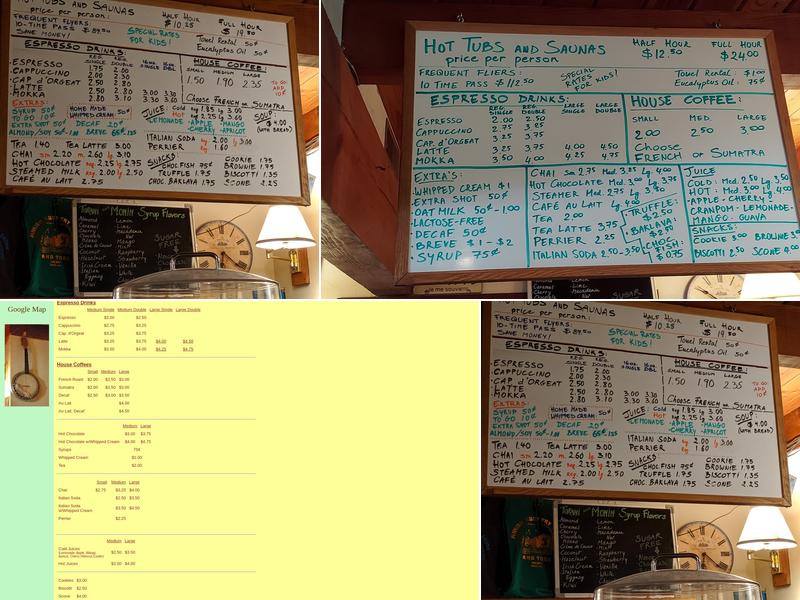 HOT TUBS AND SAUNAS
price per person:
HALF HOUR
$10.25
FULL HOUR
$19.50
FREQUENT FLYERS:
10-TIME PASS $89.50
SAVE MONEY!
SPECIAL RATES
FOR KIDS!
Towel Rental 50¢
Eucalyptus Oil 50¢
ESPRESSO DRINKS:
REG. SINGLE REG. DOUBLE 16oz. SINGLE 16oz. DBL
ESPRESSO 1.75
CAPPUCCINO 2.00
CAP. D'ORGEAT 2.00 2.30
LATTE 2.50 2.80 3.00 3.30
MOKKA 2.80 3.10 3.30 3.60
HOUSE COFFEE:
SMALL MEDIUM LARGE
1.50 1.90 2.35
TO GO ADD 10¢
Choose FRENCH or SUMATRA
EXTRAS:
SYRUP 50¢
TO GO 10¢
EXTRA SHOT 50¢
HOME MADE
WHIPPED CREAM 50¢
DECAF 20¢
JUICE: Cold reg 1.85 lg 3.00
Hot reg 2.25 lg 3.00
LEMONADE -APPLE -MANGO
-CHERRY -APRICOT
SOUP
$4.00
(WITH BREAD)
TEA 1.40 TEA LATTE 3.00
CHAI sm 2.20 m. 2.60 lg 3.10
HOT CHOCOLATE reg 2.25 lg 2.75
STEAMED MILK reg. 2.00 lg 2.50
CAFÉ AU LAIT 2.75
ITALIAN SODA reg 2.00 lg 3.00
PERRIER 1.60
SNACKS:
CHOC FISH 75¢
TRUFFLE 1.75
CHOC. BAKLAVA 1.75
COOKIE 1.75
BROWNIE 1.75
BISCOTTI 1.35
SCONE 2.25
Torani and Monin Syrup Flavors
SUGAR
FREE
HOT TUBS AND SAUNAS
price per person
HALF HOUR
$12.50
FULL HOUR
$24.00
FREQUENT FLIERS:
10 TIME PASS $112.50
SPECIAL
RATES
FOR KIDS!
Towel Rental: $1.00
Eucalyptus Oil: 75¢
ESPRESSO DRINKS:
REG. SINGLE REG. DOUBLE LARGE SINGLE LARGE DOUBLE
ESPRESSO 2.00 2.50
CAPPUCCINO 2.75 3.25
CAP. d'ORGEAT 3.25 3.75
LATTE 3.25 3.75 4.00 4.50
MOKKA 3.50 4.00 4.25 4.75
HOUSE COFFEE:
SMALL MED. LARGE
2.00 2.50 3.00
Choose
FRENCH or SUMATRA
EXTRA'S:
WHIPPED CREAM $1
EXTRA SHOT 50¢
OAT MILK 50¢-1.00
LACTOSE-FREE
DECAF 50¢
BREVE $1-$2
SYRUP 75¢
CHAI Sm 2.75 Med. 3.25 Lg. 4.00
HOT CHOCOLATE Med. 3.00 Lg. 3.75
STEAMER Med. 2.75 Lg. 3.50
CAFÉ AU LAIT Lg. 4.00
TEA 2.00
TEA LATTE 3.75
PERRIER 2.25
ITALIAN SODA 2.50-3.50
TRUFFLE:
$2.50
BAKLAVA:
$2.50
CHOC.
FISH:
$0.75
JUICE
COLD: Med. 2.50 Lg. 3.50
HOT: Med. 3.00 Lg. 4.00
APPLE-CHERRY
CRANPOM-LEMONADE-
MANGO-GUAVA
SNACKS:
COOKIE 3.00 BROWNIE
BISCOTTI 2.50 SCONE 4.00
je me souviens
SUGAR
Google Map
Espresso Drinks
Medium Single Medium Double Large Single Large Double
Espresso $2.00 $2.50
Cappuccino $2.75 $3.25
Cap. d'Orgeat $3.25 $3.75
Latte $3.25 $3.75 $4.00 $4.50
Mokka $3.50 $4.00 $4.25 $4.75
House Coffees
Small Medium Large
French Roast $2.00 $2.50 $3.00
Sumatra $2.00 $2.50 $3.00
Decaf $2.50 $3.00 $3.50
Au Lait $4.00
Au Lait, Decaf $4.50
Medium Large
Hot Chocolate $3.00 $3.75
Hot Chocolate w/Whipped Cream $4.00 $4.75
Syrups 75¢
Whipped Cream $1.00
Tea $2.00
Small Medium Large
Chai $2.75 $3.25 $4.00
Italian Soda $2.50 $3.50
Italian Soda
w/Whipped Cream $3.50 $4.50
Perrier $2.25
Medium Large
Cold Juices $2.50 $3.50
Hot Juices $3.00 $4.00
Cookies $3.00
Biscotti $2.50
Scone $4.00
TUBS AND SAUNAS
price per person:
HALF HOUR
$10.25
FULL HOUR
$19.50
FREQUENT FLYERS:
10-TIME PASS $89.50
SAVE MONEY!
SPECIAL RATES
FOR KIDS!
Towel Rental 50¢
Eucalyptus Oil 50¢
ESPRESSO DRINKS:
ESPRESSO 1.75 2.00
CAPPUCCINO 2.00 2.30
CAP D'ORGEAT 2.50 2.80
LATTE 2.50 2.80 3.00 3.30
MOKKA 2.80 3.10 3.30 3.60
HOUSE COFFEE:
SMALL MEDIUM LARGE
1.50 1.90 2.35
Choose FRENCH or SUMATRA
EXTRAS:
SYRUP 50¢
TO GO 10¢
EXTRA SHOT 50¢
HOME MADE
WHIPPED CREAM 50¢
DECAF 20¢
JUICE: Cold reg 1.85 lg 3.00
Hot reg 2.25 lg 3.00
LEMONADE -APPLE -MANGO
-CHERRY -APRICOT
SOUP
$4.00
(WITH BREAD)
TEA 1.40 TEA LATTE 3.00
CHAI sm 2.20 m. 2.60 lg 3.10
HOT CHOCOLATE reg 2.25 lg 2.75
STEAMED MILK reg. 2.00 lg 2.50
CAFÉ AU LAIT 2.75
ITALIAN SODA reg 2.00 lg 3.00
PERRIER 1.60
SNACKS:
CHOC FISH 75¢
TRUFFLE 1.75
CHOC. BAKLAVA 1.75
COOKIE 1.75
BROWNIE 1.75
BISCOTTI 1.35
SCONE 2.25
Torani and Monin Syrup Flavors
SUGAR
FREE